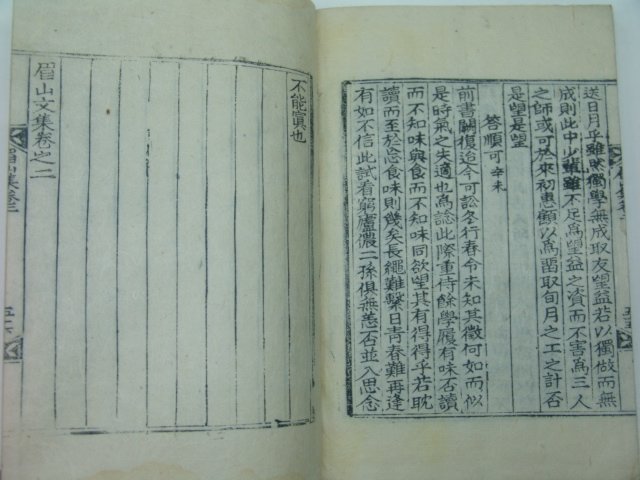 送日月乎雖昧獨學無成取友望益若以獨做而無
成則此中少輩雖不足爲望益之資而不害爲三人
之師或可於來初惠顧以爲習取旬月之工之計否
是望是望
答順可 辛未
前書闕復迨今可訟冬行春令未知其徵何如而似
是時氣之失適也爲諗此際重侍餘學履有味否讀
而不知味與食而不知味同欲望其有得得乎若耽
讀而至於忘食味則幾矣長繩難繫日青春難再逢
有如不信此試看窮廬儂二孫俱無恙否並入思念
不能寘也
眉山文集卷之二